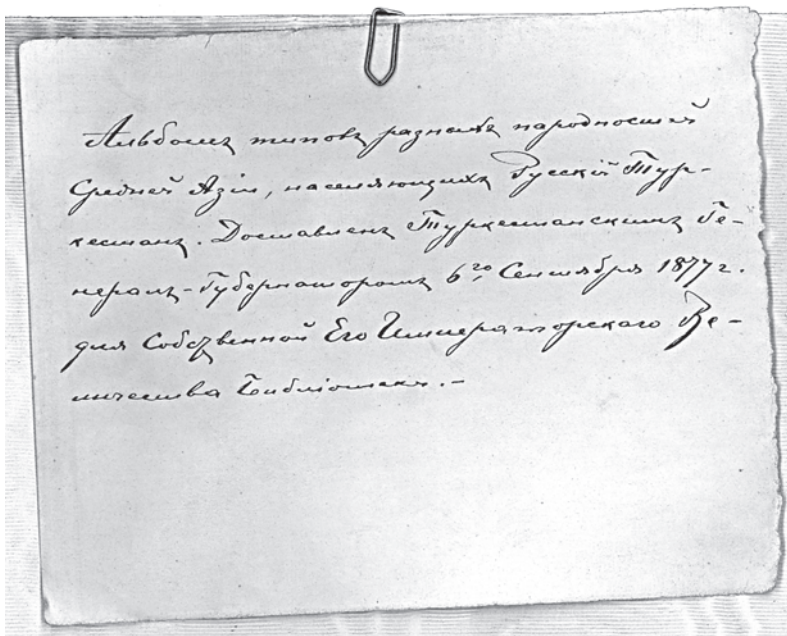 Альбомъ типовъ разныхъ народностей
Средней Азіи, населяющихъ Русскій Тур-
кестанъ. Доставленъ Туркестанскимъ Ге-
нералъ-Губернаторомъ 6го Сентября 1877 г.
для Собственной Его Императорскаго Ве-
личества Библіотеки.–